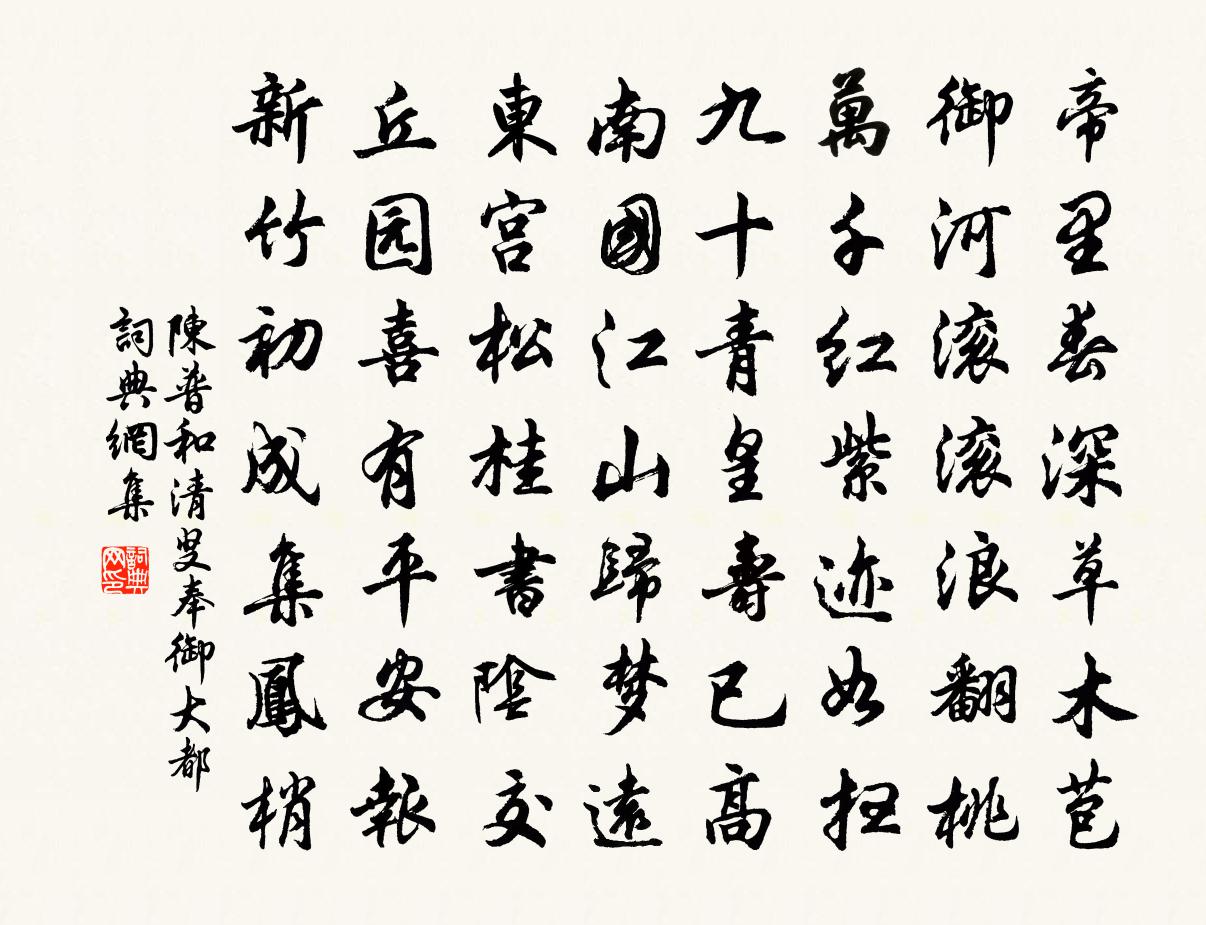 帝里春深草木苞
御河滚滚浪翻桃
萬千红紫迹如扫
九十青皇壽已高
南國江山歸梦遠
東宫松桂書陰交
丘园喜有平安報
新竹初成集鳳梢
陳普和清叟奉御大都
詞典網集
詞典网印